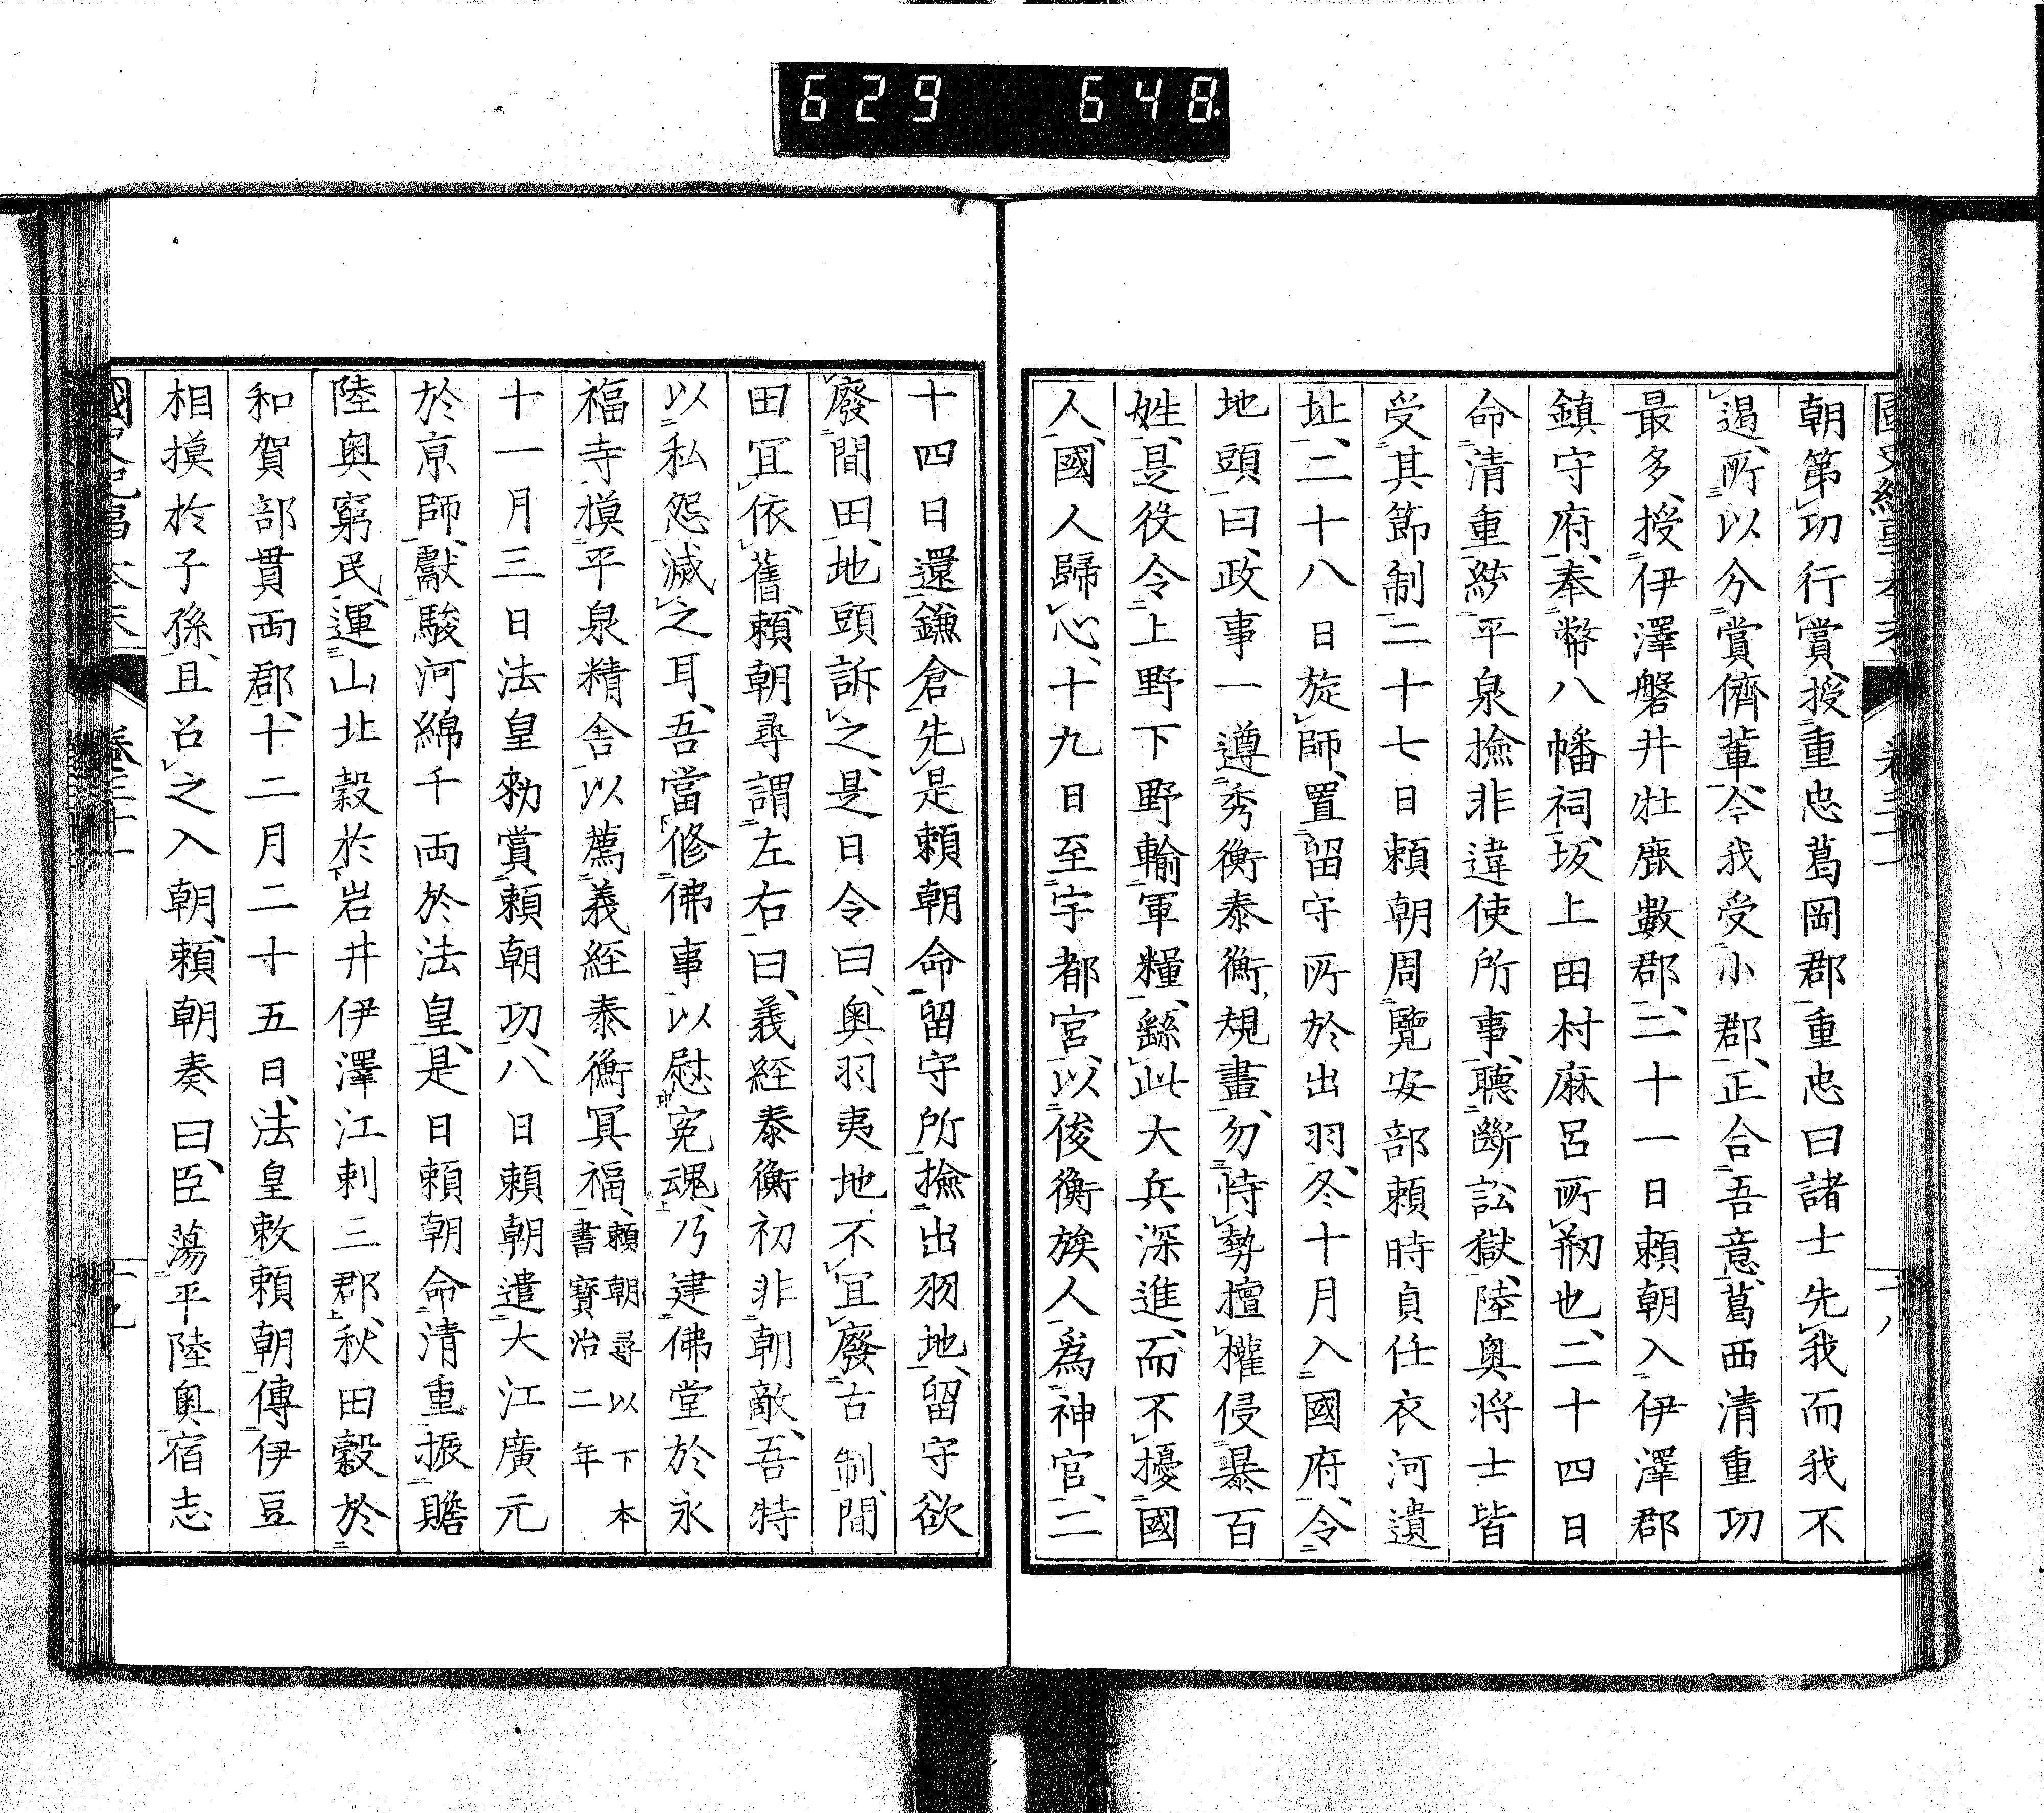 629 648.
朝第功行賞、授重忠葛岡郡重忠曰諸士先我而我不
遏、所以分賞儕輩、今我受小郡、正合吾意、葛西清重功
最多、授伊澤磐井牡鹿數郡、二十一日賴朝入伊澤郡
鎮守府、奉幣八幡祠、坂上田村麻呂所剏也、二十四日
命清重統平泉撿非違使所事、聽斷訟獄、陸奧将士皆
受其節制二十七日賴朝周覽安部賴時貞任衣河遺
址、二十八日旋師、置留守所於出羽、冬十月入國府、令
地頭曰、政事一遵秀衡泰衡規畫、勿恃勢擅權侵暴百
姓、是役令上野下野輸軍糧、繇此大兵深進、而不擾國
人、國人歸心、十九日至宇都宮、以俊衡族人爲神官、二
十四日還鎌倉先是賴朝命留守所撿出羽地、留守欲
廢間田、地頭訴之、是日令曰、奧羽夷地不宜廢古制、間
田冝依舊、賴朝尋謂左右曰、義經泰衡初非朝敵、吾特
以私怨滅之耳、吾當修佛事以慰寃魂、乃建佛堂於永
福寺摸平泉精舍以薦義經泰衡冥福、賴朝尋以下本
書寶治二年
十一月三日法皇勑賞賴朝功、八日賴朝遣大江廣元
於京師、獻駿河綿千両於法皇、是日賴朝命清重振贍
陸奧窮民、運山北穀於岩井伊澤江刺三郡、秋田穀於
和賀部貫両郡、十二月二十五日、法皇敕賴朝傳伊豆
相摸於子孫、且召之入朝、賴朝奏曰、臣蕩平陸奧宿志